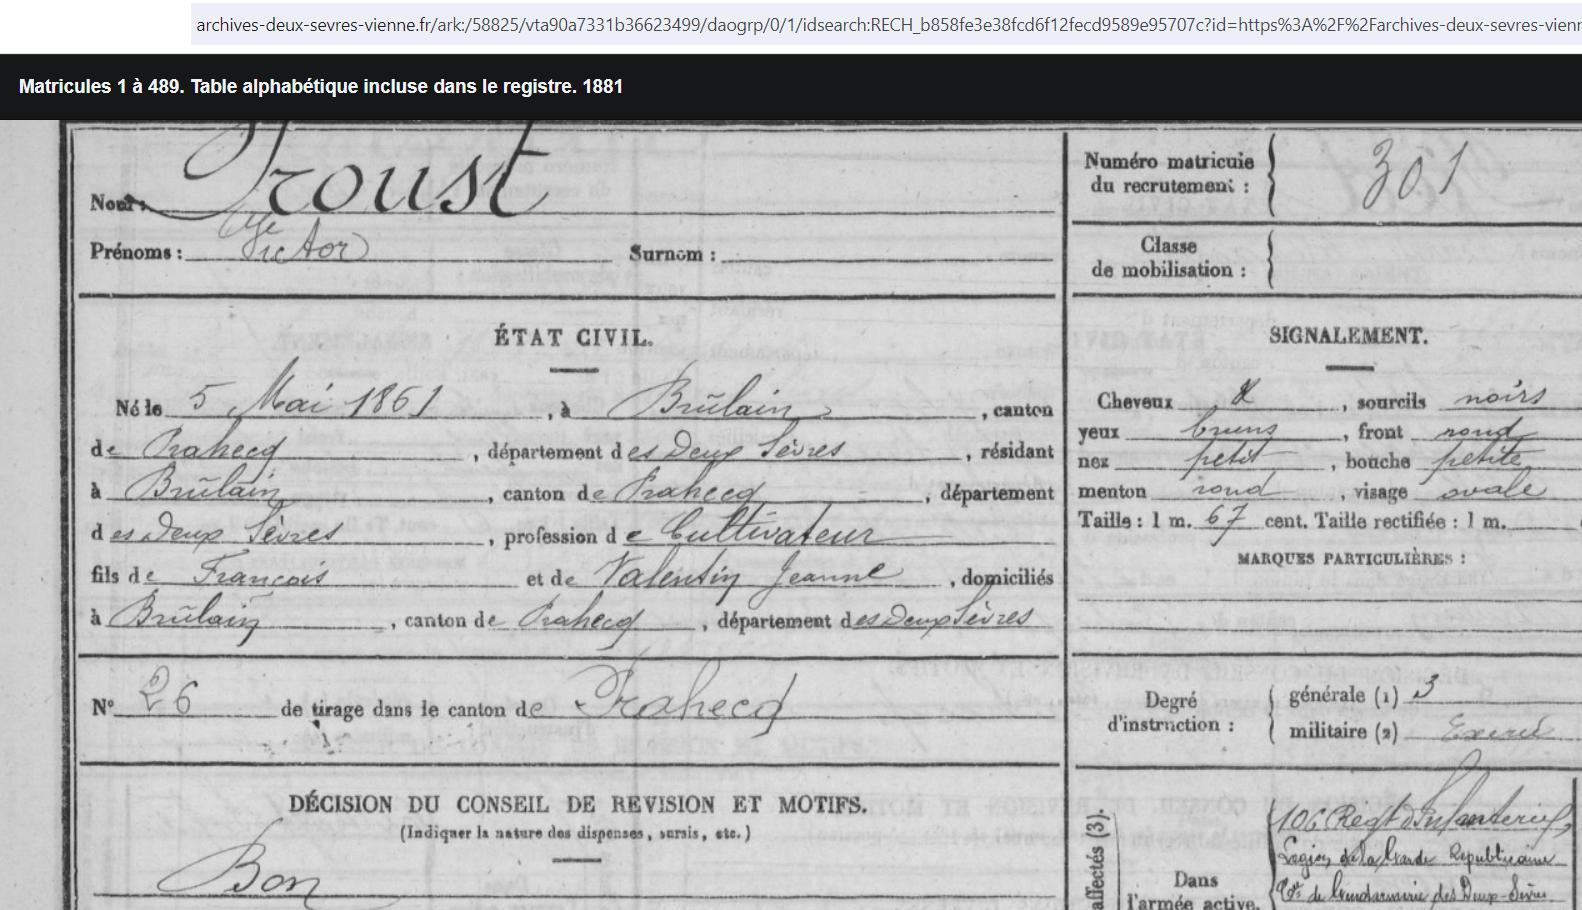 archives-deux-sevres-vienne.fr/ark:/58825/vta90a7331b36623499/daogrp/0/1/idsearch:RECH_b858fe3e38fcd6f12fecd9589e95707c?id=https%3A%2F%2Farchives-deux-sevres-vienn
Matricules 1 à 489. Table alphabétique incluse dans le registre. 1881
Nom: Proust
Prénoms: Victor Surnom:
ÉTAT CIVIL.
Né le 5 Mai 1861, à Brûlain, canton
de Prahecq, département des Deux Sèvres, résidant
à Brûlain, canton de Prahecq, département
des Deux Sèvres, profession de Cultivateur
fils de François et de Valentin Jeanne, domiciliés
à Brûlain, canton de Prahecq, département des Deux Sèvres
N° 26 de tirage dans le canton de Prahecq
DÉCISION DU CONSEIL DE REVISION ET MOTIFS.
(Indiquer la nature des dispenses, sursis, etc.)
Bon
Numéro matricule
du recrutement: 301
Classe
de mobilisation:
SIGNALEMENT.
Cheveux, sourcils noirs
yeux bruns, front rond
nez petit, bouche petite
menton rond, visage ovale
Taille: 1 m. 67 cent. Taille rectifiée: 1 m.
MARQUES PARTICULIÈRES:
Degré
d'instruction:
générale (1) 3
militaire (2) Exercé
affectés (3).
Dans
l'armée active.
106 Régt d'Infanterie
Légion de la Garde Républicaine
Cie de Gendarmerie des Deux-Sèvres